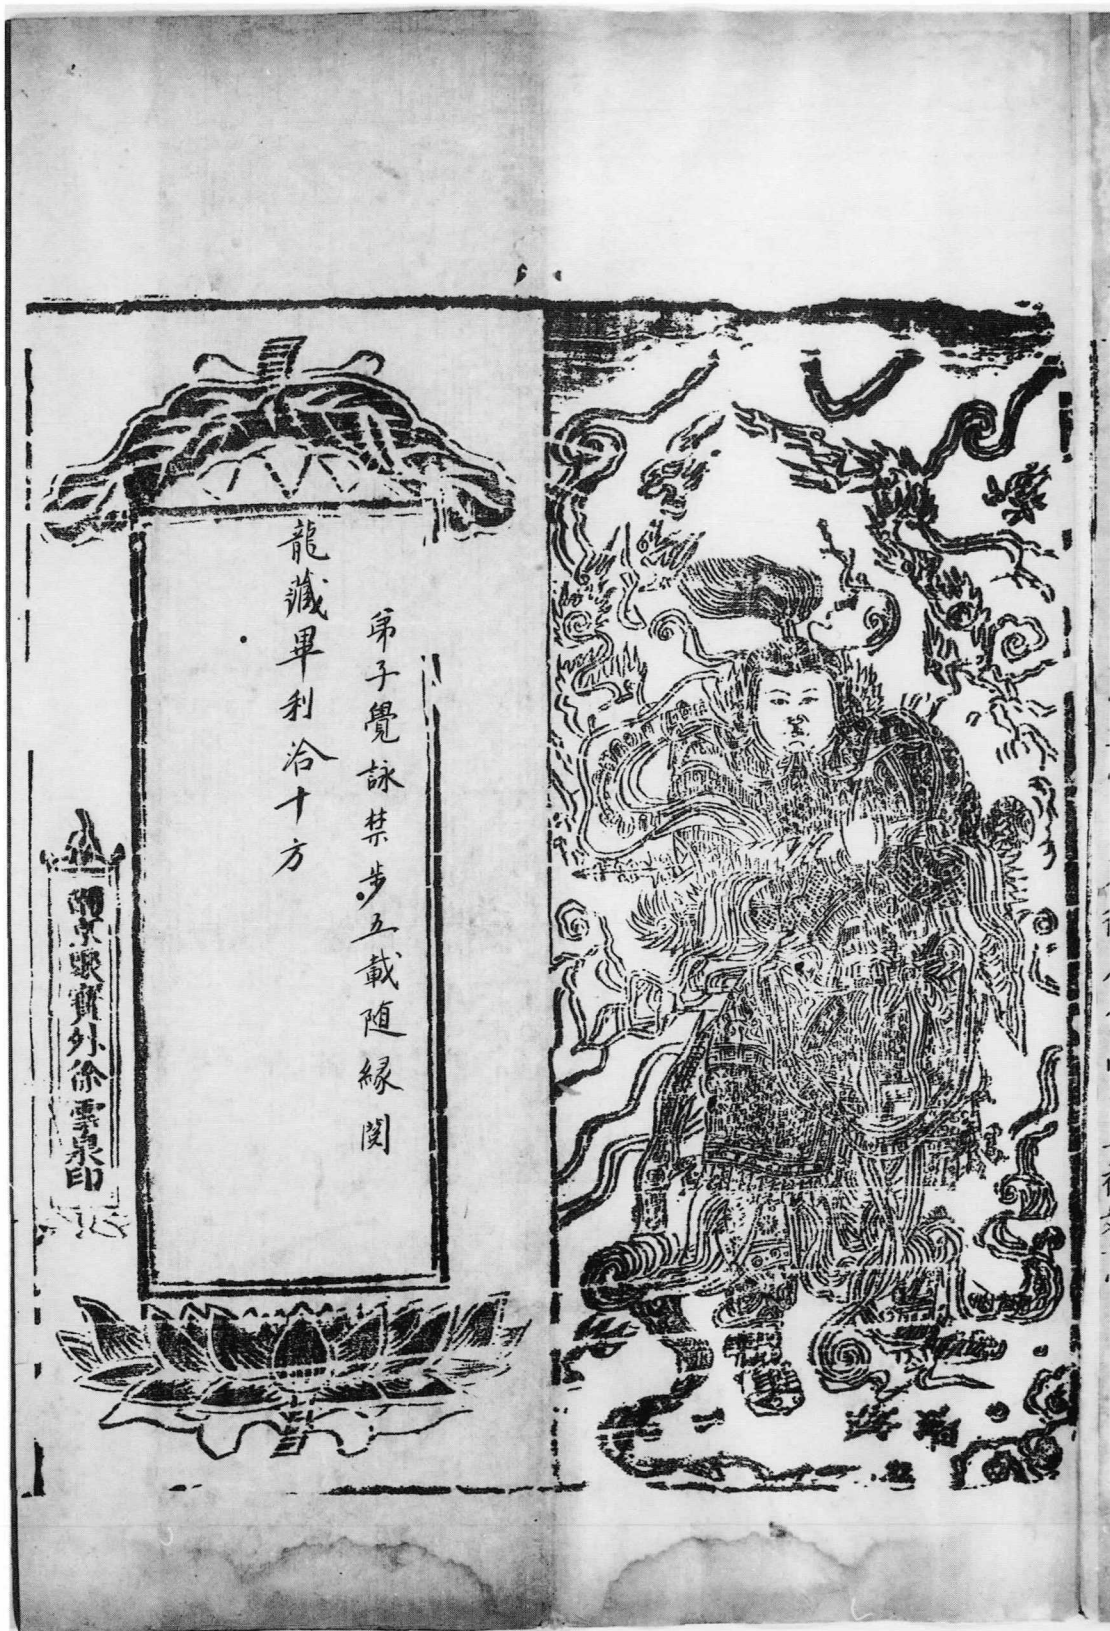 弟子覺詠禁步五載随縁閱
龍藏畢利洽十方
南京聚寶外徐雲泉印